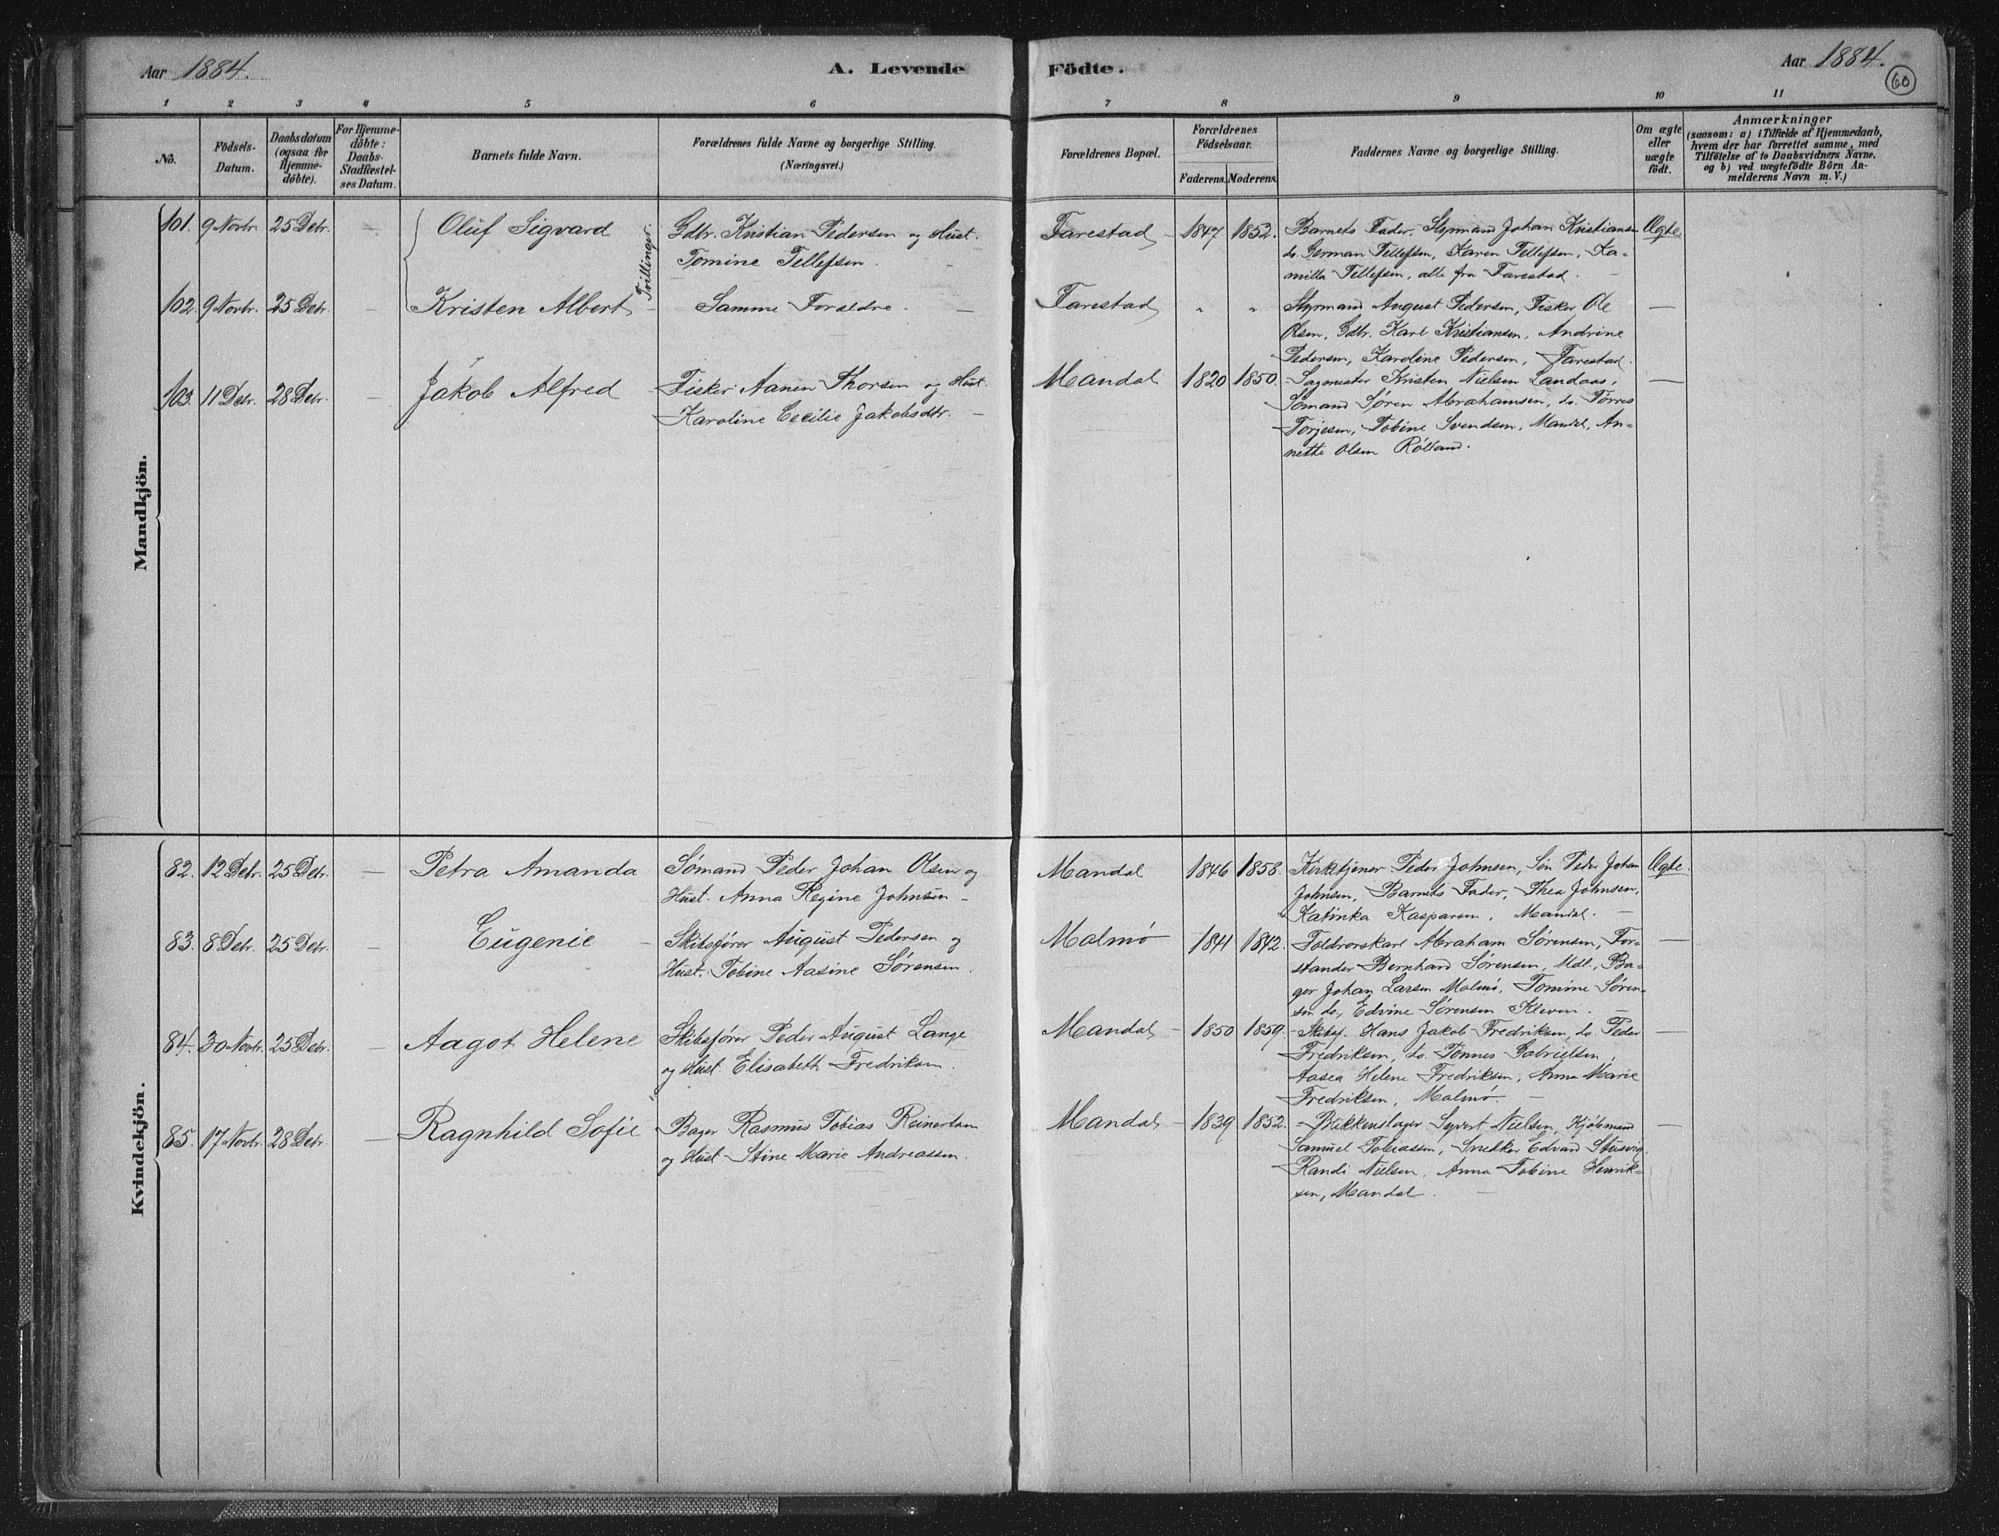 Aar 1884.
A. Levende Födte.
Aar 1884.
60
1 2 3 4 5 6 7 8 9 10 11
No.
Födsels-
Datum.
Daabsdatum
(ogsaa for
Hjemme-
döbte).
For Hjemme-
döbte:
Daabs-
Stadfæstel-
ses Datum.
Barnets fulde Navn.
Forældrenes fulde Navne og borgerlige Stilling.
(Næringsvei.)
Forældrenes Bopæl.
Forældrenes
Födselsaar.
Faderens. Moderens.
Faddernes Navne og borgerlige Stilling.
Om ægte
eller
uægte
födt.
Anmærkninger
(saasom: a) i Tilfælde af Hjemmedaab,
hvem der har forrettet samme, med
Tilföielse af to Daabsvidners Navne,
og b) ved uægtefödte Börn An-
melderens Navn m. V.)
Mandkjön.
101. 9 Novbr. 25 Debr. – Oluf Sigvard
Tvillinger.
Gdbr. Kristian Pedersen og Hust.
Tomine Tellefsen –
Farestad – 1847 1852.
Barnets Fader, Styrmand Johan Kristiansen
do. German Tellefsen, Karen Tellefsen, Ka-
milla Tellefsen, alle fra Farestad. –
Ægte
102. 9 Novbr. 25 Debr. – Kristen Albert –
Samme Forældre. –
Farestad " "
Styrmand August Pedersen, Fisker Ole
Olsen, Gdbr. Karl Kristiansen, Andrine
Pedersen, Karoline Pedersen, Farestad.
—
103. 11 Debr. 28 Debr. – Jakob Alfred
Fisker Aanen Thorsen og Hust.
Karoline Cecilie Jakobsdtr. –
Mandal 1820 1850.
Sagmester Kristen Nielsen Landaas,
Sömand Søren Abrahamsen, do. Tørres
Torjesen, Tobine Svendsen, Mandal, An-
nette Olsen
—
Kvindekjön.
82. 12 Debr. 25 Debr. – Petra Amanda
Sømand Peder Johan Olsen og
Hust. Anna Regine Johnsen –
Mandal 1846 1858.
Kirketjener Peder Johnsen, Søn Peder Johan
Johnsen, Barnets Fader, Thea Johnsen,
Katinka Kaspersen, Mandal. –
Ægte.
83. 8 Debr. 25 Debr. – Eugenie –
Skibsfører August Pedersen og
Hust. Tobine Aasine Sørensen.
Malmø 1841 1842.
Toldrorskarl Abraham Sørensen, For-
stander Bernhard Sørensen, Mdl., Ba-
ger Johan Larsen Malmø, Tomine Søren-
sen do, Edvine Sørensen Kleven. –
—
84. 30 Novbr. 25 Debr. – Aagot Helene
Skibsfører Peder August Lange
og Hust Elisabeth Fredriksen.
Mandal – 1850 1859.
Skibsf. Hans Jakob Fredriksen, do. Peder
Fredriksen, do. Tønnes Gabrielsen,
Aasea Helene Fredriksen, Anna Marie
Fredriksen, Malmø. –
—
85. 17 Novbr. 28 Debr. – Ragnhild Sofie
Bager Rasmus Tobias Reinertsen
og Hust Stine Marie Andreassen.
Mandal – 1839 1852.
Blikkenslager Syvert Nielsen, Kjøbmand
Samuel Tobiassen, Snedker Edvard
Randi Nielsen, Anna Tobine Henrik-
sen, Mandal. –
—